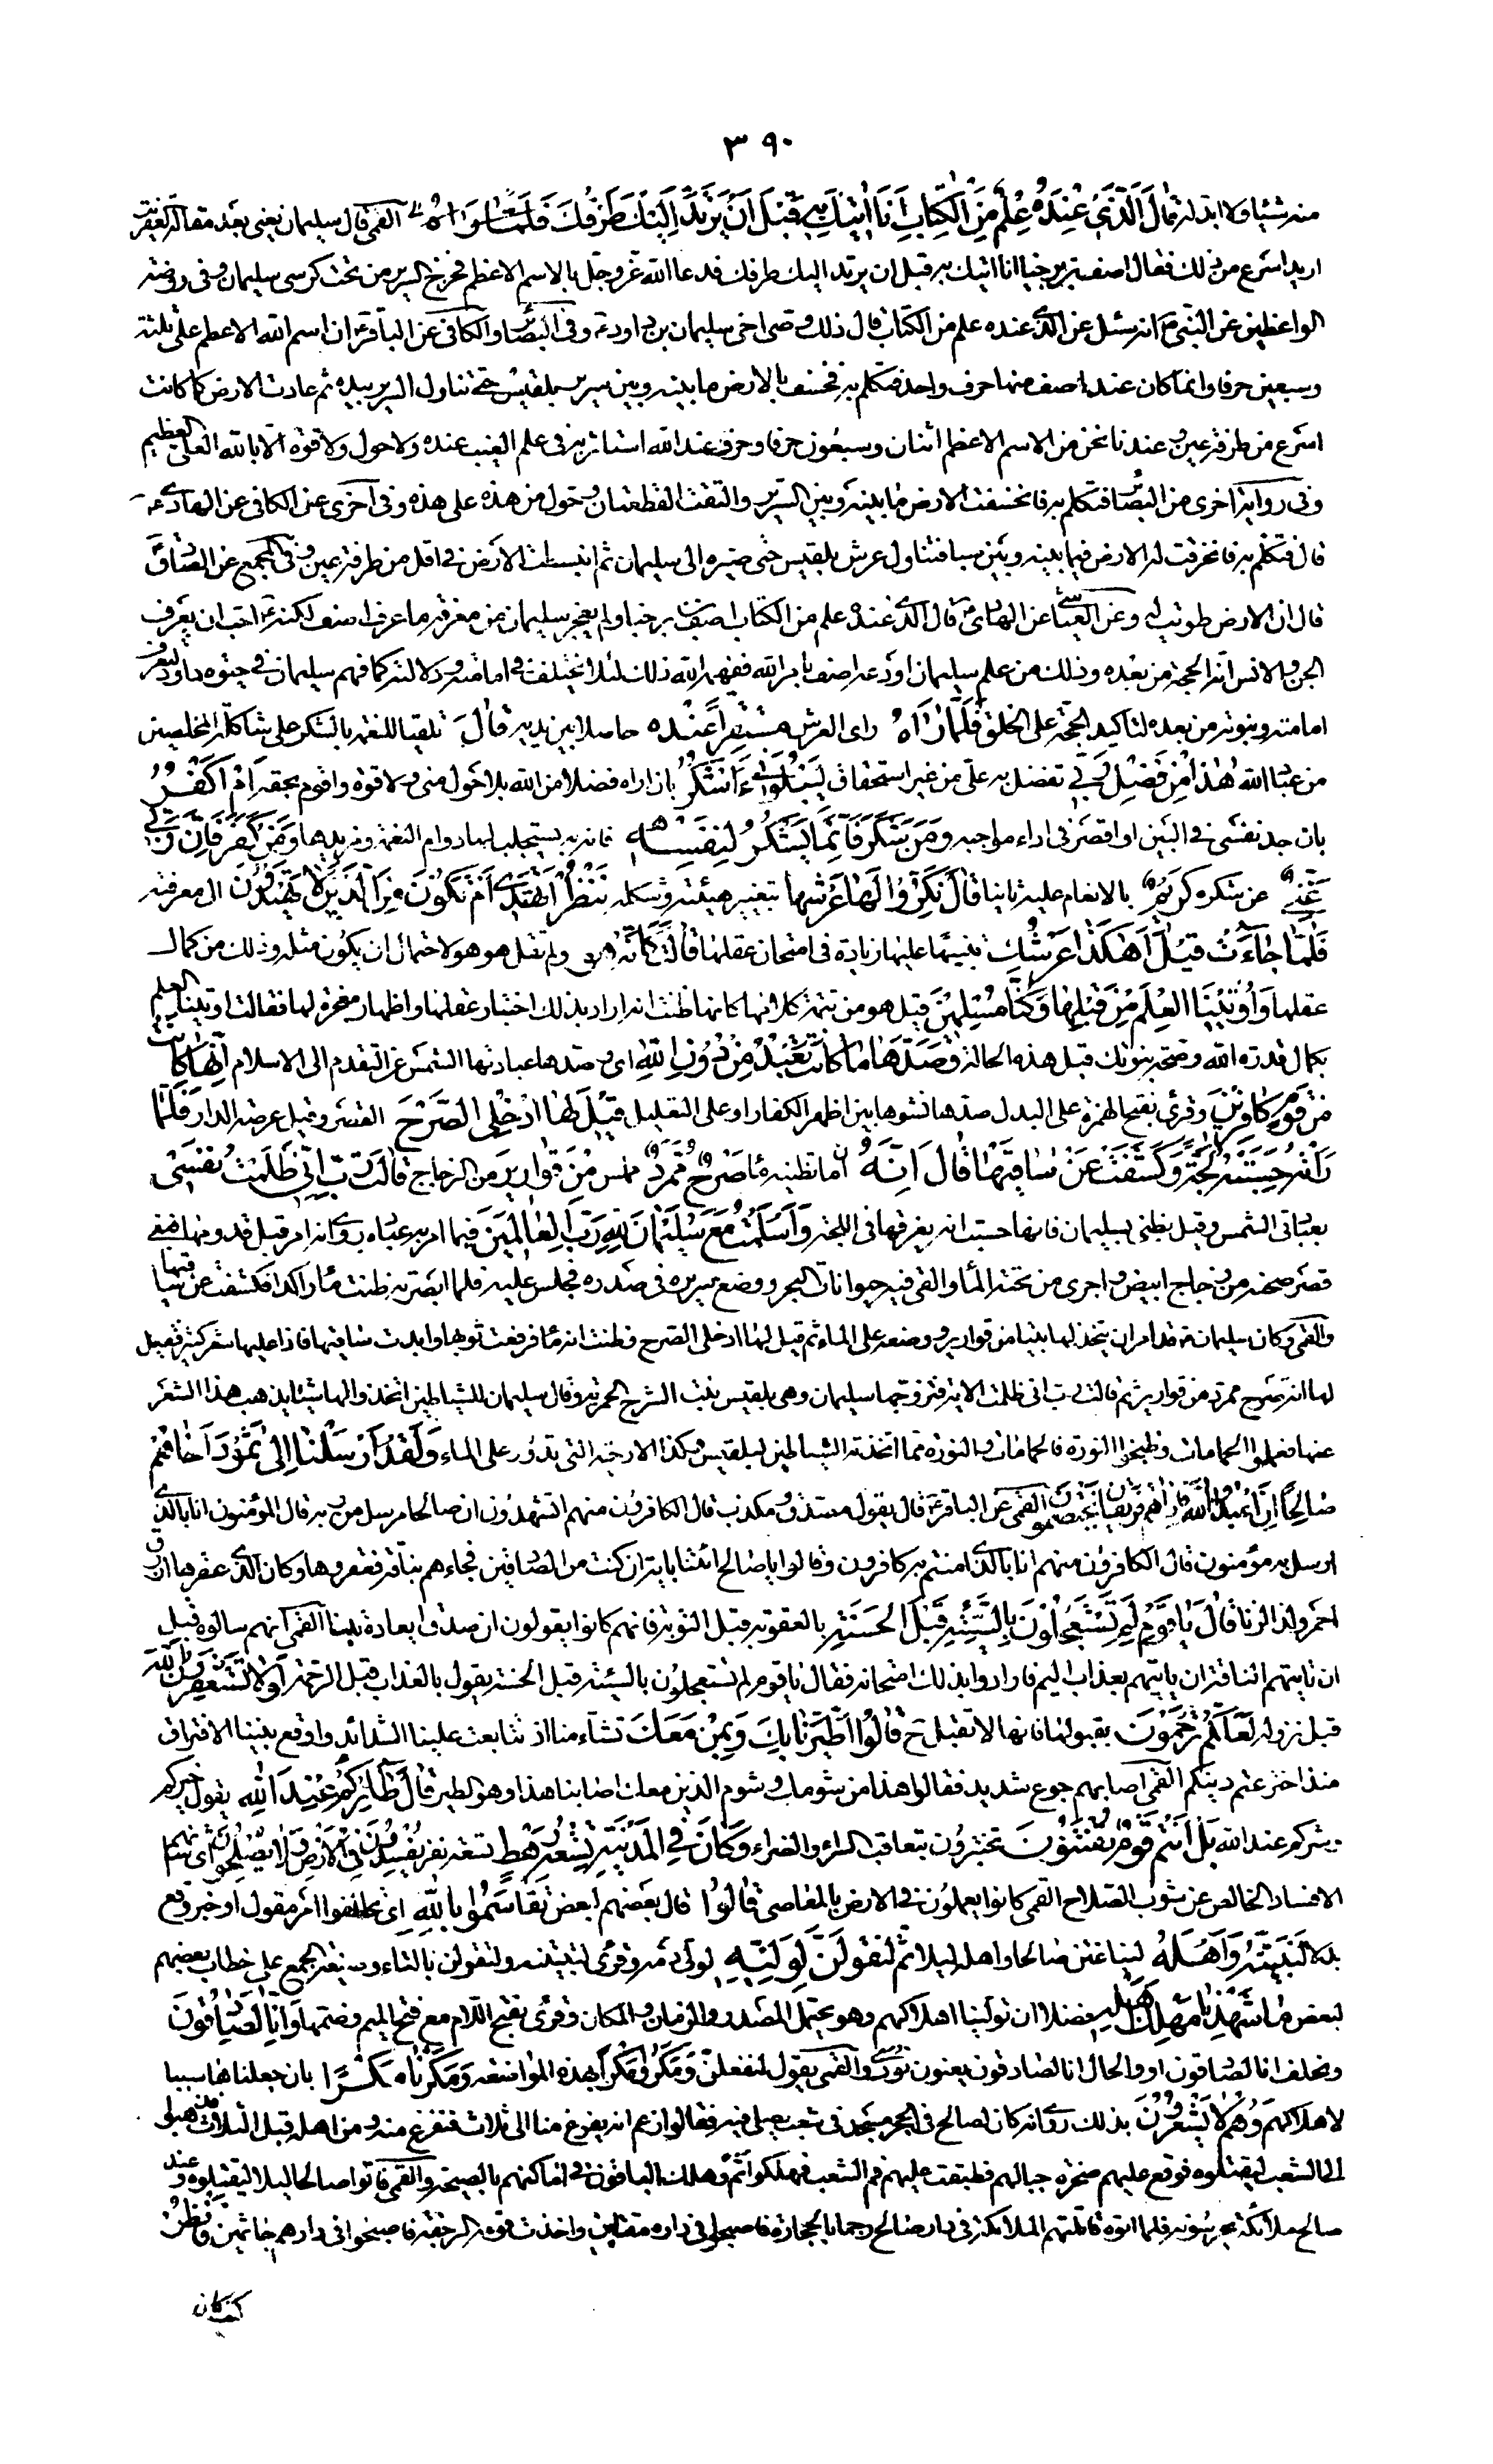 ٣٩٠
منه شيئا ولا ابدله قَالَ الَّذِي عِنْدَهُ عِلْمٌ مِنَ الْكِتَابِ اَنَا اٰتِيكَ بِهِ قَبْلَ اَنْ يَرْتَدَّ اِلَيْكَ طَرْفُكَ القمي قال سليمان يعني بعد مقالة عفريت
اريد اسرع من ذلك فقال اصف بن برخيا انا اتيك به قبل ان يرتد اليك طرفك فدعا الله عز وجل بالاسم الاعظم فخرج السرير من تحت كرسي سليمان وفي روضة
الواعظين عن النبي ص انه سئل عن الذي عنده علم من الكتاب قال ذلك وصي اخي سليمان بن داود ع وفي البصائر والكافي عن الباقر ع ان اسم الله الاعظم على ثلثة
وسبعين حرفا وانما كان عند اصف منها حرف واحد فتكلم به فخسف بالارض ما بينه وبين سرير بلقيس حتى تناول السرير بيده ثم عادت الارض كما كانت
اسرع من طرفة عين وعندنا نحن من الاسم الاعظم اثنان وسبعون حرفا وحرف عند الله استاثر به في علم الغيب عنده ولا حول ولا قوة الا بالله العلي العظيم
وفي رواية اخرى من البصائر فتكلم به فانخسفت الارض ما بينه وبين السرير والتفت القطعتان وحول من هذه على هذه وفي اخرى عن الكافي عن الهادي ع
قال فتكلم به فانخرقت له الارض فيما بينه وبين سبا فتناول عرش بلقيس حتى صيره الى سليمان ثم انبسطت الارض في اقل من طرفة عين وفي المجمع عن الصادق
قال ان الارض طويت له وعن العياشي عن الهادي ع قال الذي عنده علم من الكتاب اصف بن برخيا ولم يعجز سليمان عن معرفة ما عرف اصف لكنه ع احب ان يعرف
الجن والانس انه الحجة من بعده وذلك من علم سليمان اودعه اصف بامر الله ففهمه الله ذلك لئلا يختلف في امامته ودلالته كما فهم سليمان في حيوة داود لتعرف
امامته ونبوته من بعده لتاكيد الحجة على الخلق فَلَمَّا رَاٰهُ راى العرش مُسْتَقِرًّا عِنْدَهُ حاصلا بين يديه قَالَ تلقيا للنعمة بالشكر على شاكلة المخلصين
من عباد الله هٰذَا مِنْ فَضْلِ رَبِّي تفضل به علي من غير استحقاق لِيَبْلُوَنِي ءَاَشْكُرُ بان اراه فضلا من الله بلا حول مني ولا قوة واقوم بحقه اَمْ اَكْفُرُ
بان اجد نفسي في البين او اقصر في اداء مواجبه وَمَنْ شَكَرَ فَاِنَّمَا يَشْكُرُ لِنَفْسِهِ فانه به يستجلب لها دوام النعمة ومزيدها وَمَنْ كَفَرَ فَاِنَّ رَبِّي
غَنِيٌّ عن شكره كَرِيمٌ بالانعام عليه ثانيا قَالَ نَكِّرُوا لَهَا عَرْشَهَا بتغيير هيئته وشكله نَنْظُرْ اَتَهْتَدِي اَمْ تَكُونُ مِنَ الَّذِينَ لَا يَهْتَدُونَ الى معرفته
فَلَمَّا جَاءَتْ قِيلَ اَهٰكَذَا عَرْشُكِ تشبيها عليها زيادة في امتحان عقلها قَالَتْ كَاَنَّهُ هُوَ ولم تقل هو هو لاحتمال ان يكون مثله وذلك من كمال
عقلها وَاُوتِينَا الْعِلْمَ مِنْ قَبْلِهَا وَكُنَّا مُسْلِمِينَ قيل هو من تتمة كلامها كانها ظنت انه اراد بذلك اختبار عقلها واظهار معجزة لها فقالت اوتينا العلم
بكمال قدرة الله وصحة نبوتك قبل هذه الحالة وَصَدَّهَا مَا كَانَتْ تَعْبُدُ مِنْ دُونِ اللهِ اي وصدها عبادتها الشمس عن التقدم الى الاسلام اِنَّهَا كَانَتْ
مِنْ قَوْمٍ كَافِرِينَ وقرئ بفتح الهمزة على البدل صدها نشوها بين اظهر الكفار او على التعليل قِيلَ لَهَا ادْخُلِي الصَّرْحَ القصر وقيل عرصة الدار فَلَمَّا
رَاَتْهُ حَسِبَتْهُ لُجَّةً وَكَشَفَتْ عَنْ سَاقَيْهَا قَالَ اِنَّهُ اما تظنينه ماء صَرْحٌ مُمَرَّدٌ مملس مِنْ قَوَارِيرَ من الزجاج قَالَتْ رَبِّ اِنِّي ظَلَمْتُ نَفْسِي
بعبادتي الشمس وقيل بظني بسليمان فانها حسبت انه يغرقها في اللجة وَاَسْلَمْتُ مَعَ سُلَيْمَانَ لِلّٰهِ رَبِّ الْعَالَمِينَ فيما امر به عباده روي انه امر قبل قدومها فبني
قصر صحنه من زجاج ابيض واجرى من تحته الماء والقى فيه حيوانات البحر ووضع سريره في صدره فجلس عليه فلما ابصرته ظنت ماء راكدا فكشفت عن ساقيها
والقمي وكان سليمان ع قد امر ان يتخذ لها بيتا من قوارير ووضعه على الماء ثم قيل لها ادخلي الصرح وظنت انه ماء فرفعت ثوبها وابدت ساقيها فاذا عليها شعر كثير فقيل
لها انه صرح ممرد من قوارير ثم قالت رب اني ظلمت الاية فتزوجها سليمان وهي بلقيس بنت الشرح الحميرية وقال سليمان للشياطين اتخذوا لها شيئا يذهب هذا الشعر
عنها فعملوا الحمامات وطبخوا النورة فالحمامات والنورة مما اتخذته الشياطين لبلقيس وكذا الارحية التي تدور على الماء وَلَقَدْ اَرْسَلْنَا اِلٰى ثَمُودَ اَخَاهُمْ
صَالِحًا اَنِ اعْبُدُوا اللهَ فَاِذَا هُمْ فَرِيقَانِ يَخْتَصِمُونَ القمي عن الباقر ع قال يقول مصدق ومكذب قال الكافرون منهم اتشهدون ان صالحا مرسل من ربه قال المؤمنون انا بالذي
ارسل به مؤمنون قال الكافرون منهم انا بالذي امنتم به كافرون وقالوا يا صالح ائتنا باية ان كنت من الصادقين فجاءهم بناقة فعقروها وكان الذي عقرها ازرق
احمر ولد الزنا قَالَ يَا قَوْمِ لِمَ تَسْتَعْجِلُونَ بِالسَّيِّئَةِ قَبْلَ الْحَسَنَةِ بالعقوبة قبل التوبة فانهم كانوا يقولون ان صدق ايعاده تبنا القمي انهم سالوه قبل
ان تاتيهم الناقة ان ياتيهم بعذاب اليم فارادوا بذلك امتحانه فقال يا قوم لم تستعجلون بالسيئة قبل الحسنة يقول بالعذاب قبل الرحمة لَوْلَا تَسْتَغْفِرُونَ اللهَ
قبل نزوله لَعَلَّكُمْ تُرْحَمُونَ بقبولها فانها لا تقبل ح قَالُوا اطَّيَّرْنَا بِكَ وَبِمَنْ مَعَكَ تشاءمنا اذ تتابعت علينا الشدائد واوقع بيننا الافتراق
منذ اخترعتم دينكم القمي اصابهم جوع شديد فقالوا هذا من شومك وشوم الذين معك اصابنا هذا وهو الطير قَالَ طَائِرُكُمْ عِنْدَ اللهِ يقول خيركم
وشركم عند الله بَلْ اَنْتُمْ قَوْمٌ تُفْتَنُونَ تختبرون بتعاقب السراء والضراء وَكَانَ فِي الْمَدِينَةِ تِسْعَةُ رَهْطٍ تسعة نفر يُفْسِدُونَ فِي الْاَرْضِ وَلَا يُصْلِحُونَ اي شانهم
الافساد الخالص عن شوب الصلاح القمي كانوا يعملون في الارض بالمعاصي قَالُوا قال بعضهم لبعض تَقَاسَمُوا بِاللهِ اي تحالفوا امر مقول او خبر وقع
بدلا لَنُبَيِّتَنَّهُ وَاَهْلَهُ ليباغتن صالحا واهله ليلا ثُمَّ لَنَقُولَنَّ لِوَلِيِّهِ لولي دمه وقرئ لتبيتنه ولتقولن بالتاء وبصيغة الجمع على خطاب بعضهم
لبعض مَا شَهِدْنَا مَهْلِكَ اَهْلِهِ فضلا ان تولينا اهلاكهم وهو يحتمل المصدر والزمان والمكان وقرئ بفتح اللام مع فتح الميم وضمها وَاِنَّا لَصَادِقُونَ
ونحلف انا لصادقون او والحال انا لصادقون يعنون نوري والقمي يقول لنفعلن وَمَكَرُوا مَكْرًا بهذه المواضعة وَمَكَرْنَا مَكْرًا بان جعلناها سببا
لاهلاكهم وَهُمْ لَا يَشْعُرُونَ بذلك روي انه كان لصالح في الحجر مسجد في شعب يصلي فيه فقالوا زعم انه يفرغ منا الى ثلاث فنفرغ منه ومن اهله قبل الثلاث فذهبوا
الى الشعب ليقتلوه فوقع عليهم صخرة حيالهم فطبقت عليهم فم الشعب فهلكوا ثمة وهلك الباقون في اماكنهم بالصيحة والقمي فاتوا صالحا ليلا ليقتلوه وعند
صالح ملائكة يحرسونه فلما اتوه قاتلتهم الملائكة في دار صالح رجما بالحجارة فاصبحوا في داره مقتلين واخذت قومه الرجفة فاصبحوا في دارهم جاثمين فَانْظُرْ
كَيْفَ كَانَ